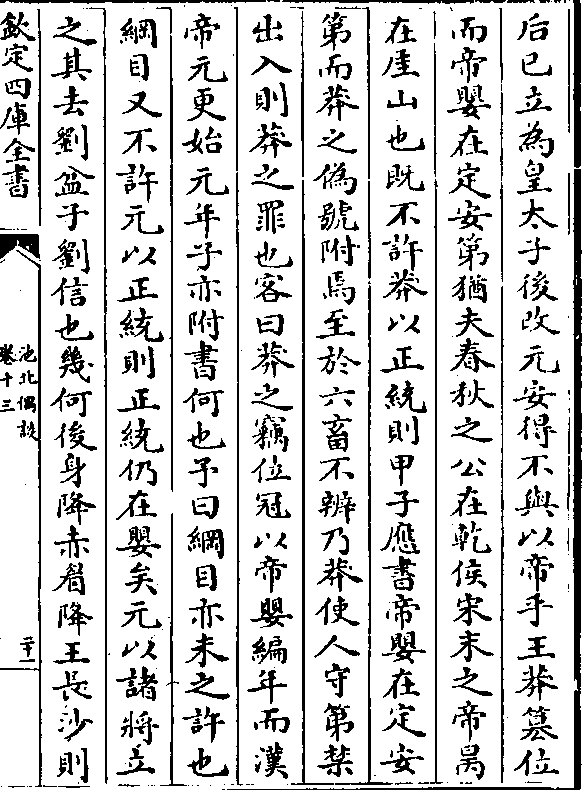 后已立為皇太子後改元安得不與以帝乎王莽篡位
而帝嬰在定安第猶夫春秋之公在乾侯宋末之帝昺
在厓山也既不許莽以正統則甲子應書帝嬰在定安
第而莽之偽號附焉至於六畜不辨乃莽使人守第禁
出入則莽之罪也客曰莽之竊位冠以帝嬰編年而漢
帝元更始元年子亦附書何也予曰綱目亦未之許也
綱目又不許元以正統則正統仍在嬰矣元以諸將立
之其去劉盆子劉信也幾何後身降赤眉降王長沙則
欽定四庫全書
池北偶談
卷十三
二十一